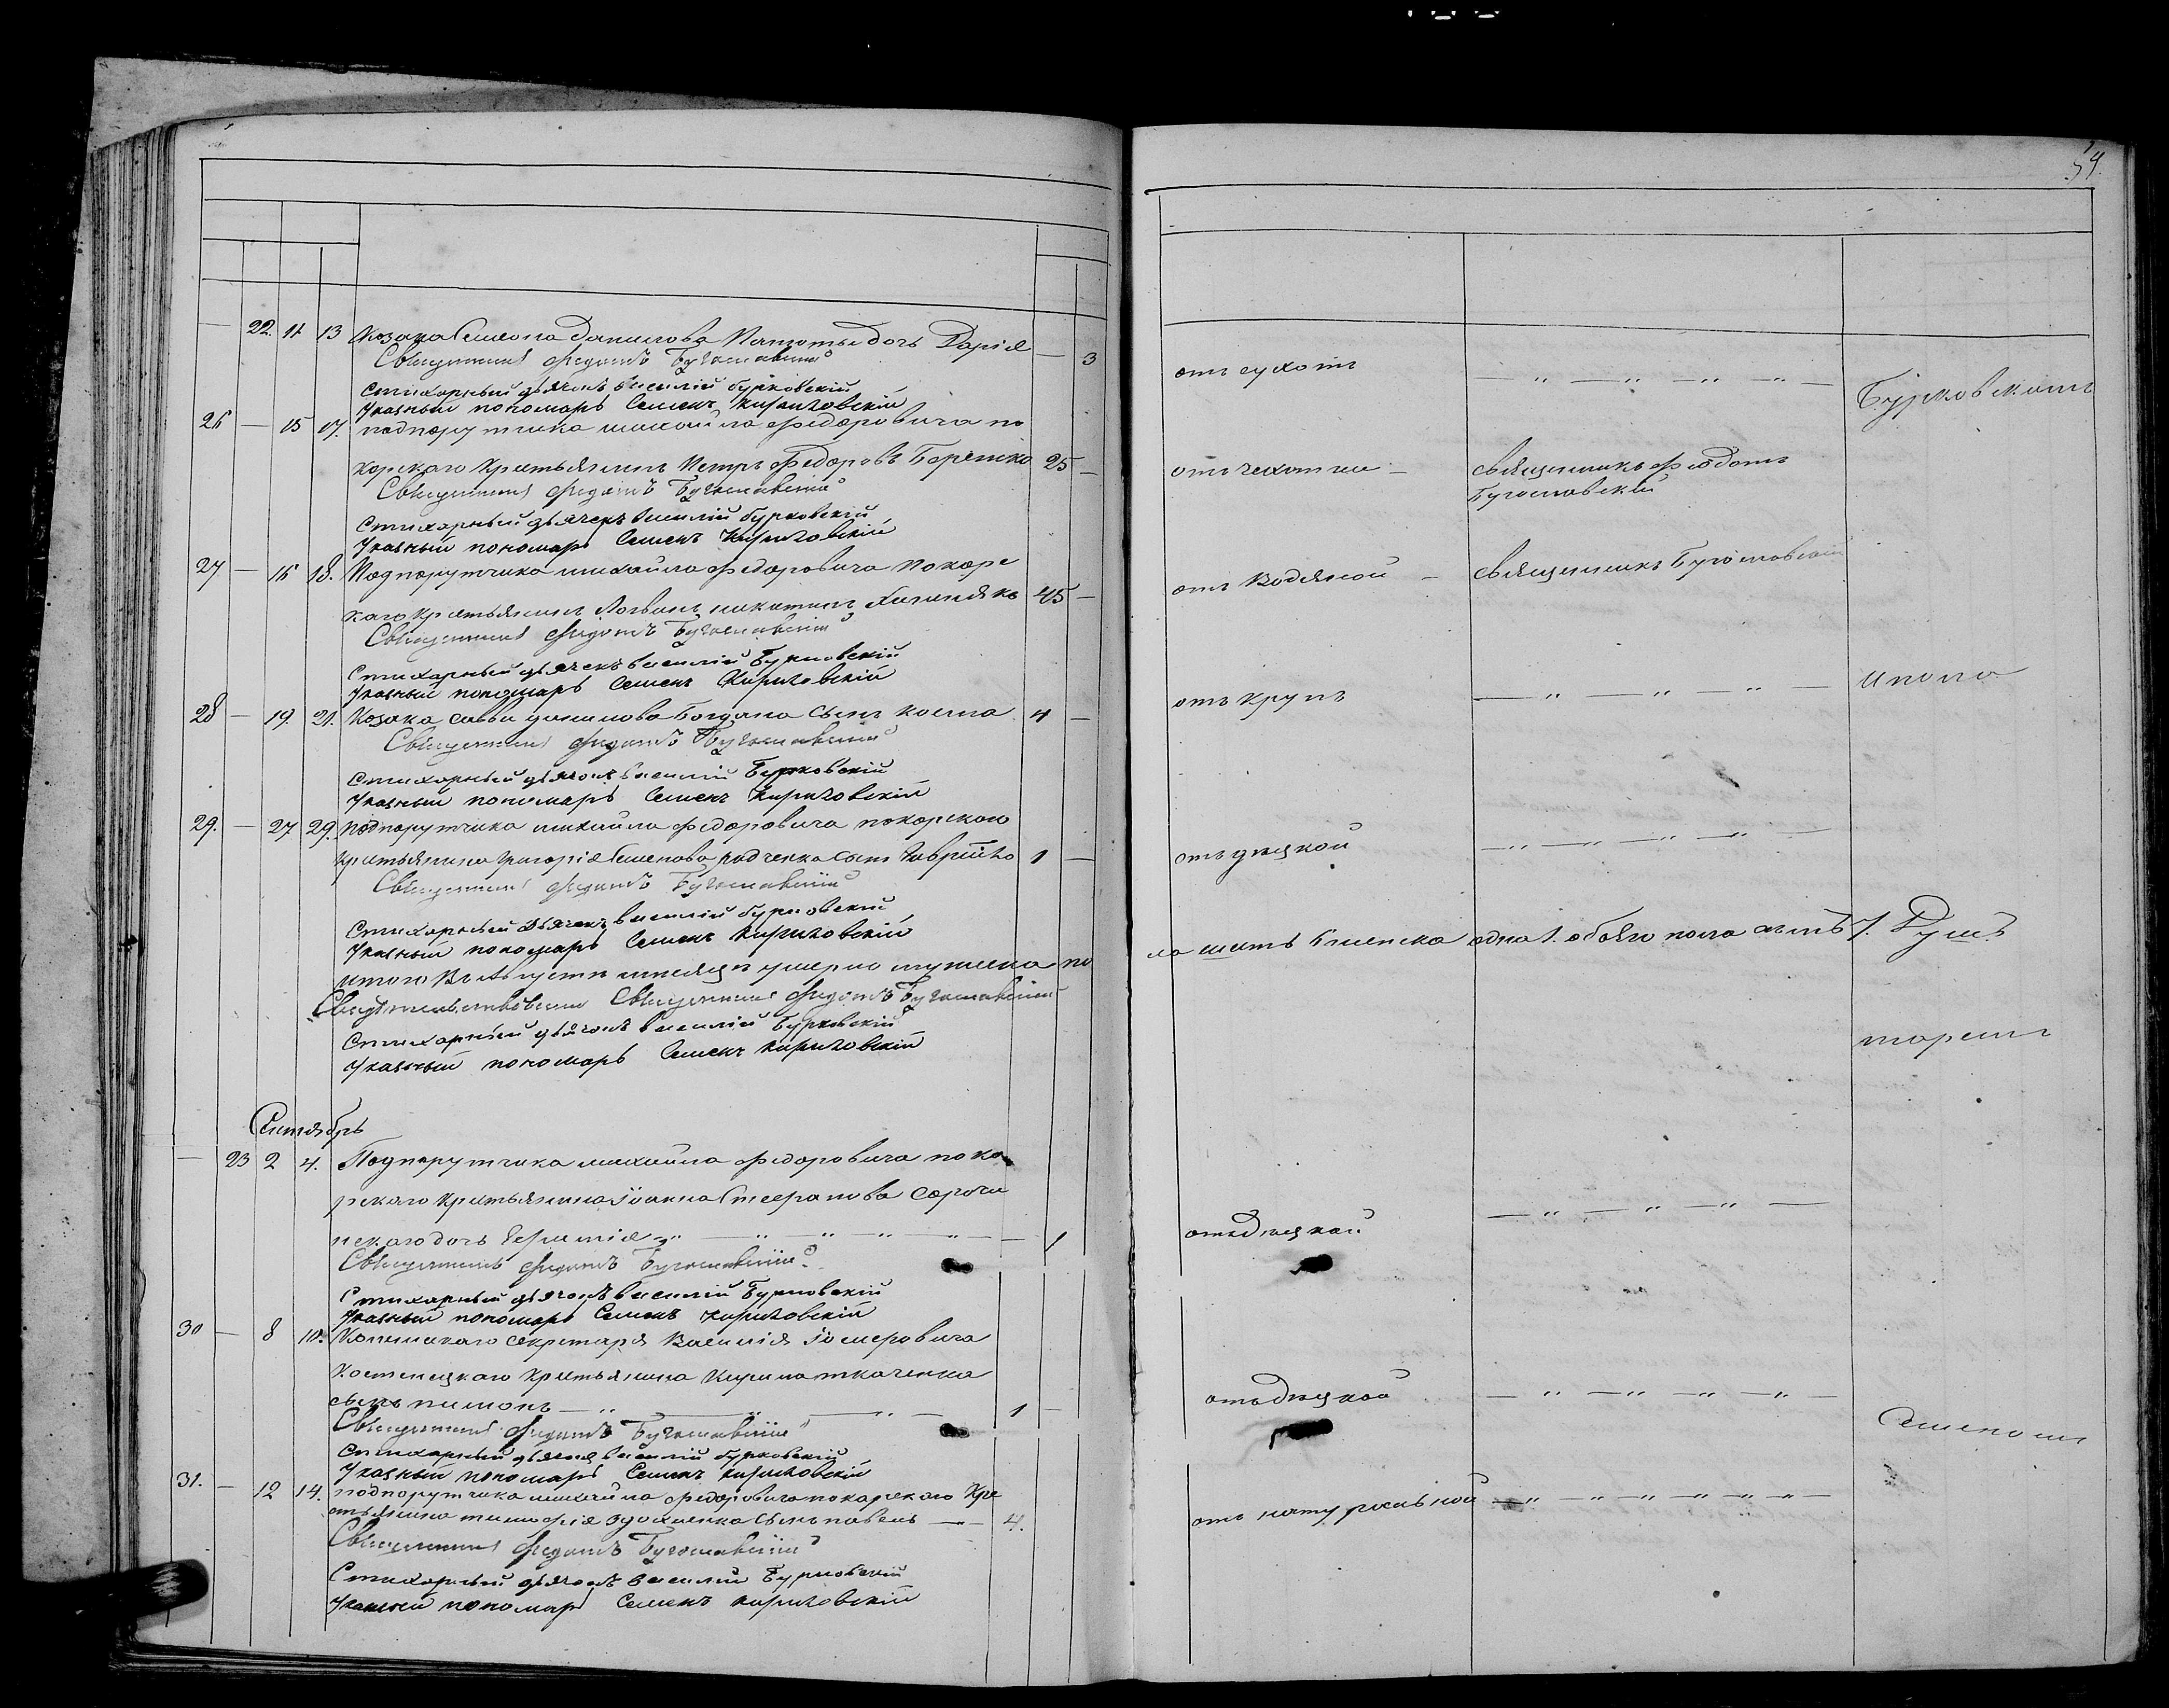 54.
22. 11 13 Козака Симеона Данилова дочь Дарія — 3
Священникъ Федотъ Бугославскій
Стихарный дьячекъ Василій Бурковскій
Указный пономарь Семенъ Кириловскій
26 — 15 17. подпорутчика михаила Федоровича по
корскаго крестьянинъ Петръ Федоровъ 25 —
Священникъ Федотъ Бугославскій
Стихарный дьячекъ Василій Бурковскій
Указный пономарь Семенъ Кириловскій
27 — 16 18. Подпорутчика михайла Федоровича Покорс
каго крестьянинъ никитинъ 45 —
Священникъ Федотъ Бугославскій
Стихарный дьячекъ Василій Бурковскій
Указный пономарь Семенъ Кириловскій
28 — 19. 21. Козака саввы данилова сынъ косма 4 —
Священникъ Федотъ Бугославскій
Стихарный дьячокъ Василій Бурковскій
Указный пономарь Семенъ Кириловскій
29. — 27 29. Подпорутчика михайла Федоровича покорскаго
крестьянина Григорія Семенова сынъ Гаврійло 1 —
Священникъ Федотъ Бугославскій
Стихарный дьячекъ Василій Бурковскій
Указный пономарь Семенъ Кириловскій
итого Въ Августе месяце умерло мужеска по
Свидетельствовали Священникъ Федотъ Бугославскій
Стихарный дьячокъ Василій Бурковскій
Указный пономарь Семенъ Кириловскій
Сентябрь
— 23 2 4. Подпорутчика михайла Федоровича поко
рскаго крестьянина Іоанна
дочь — " — " — " — 1
Священникъ Федотъ Бугославскій
Стихарный дьячокъ Василій Бурковскій
Указный пономарь Семенъ Кириловскій
30 — 8 10. секретаря Василія
Костенецкаго крестьянина Кирила ткаченка
сынъ пимонъ — " — " — " — 1 —
Священникъ Федотъ Бугославскій
Стихарный дьячокъ Василій Бурковскій
Указный пономарь Семенъ Кириловскій
31. — 12 14. подпорутчика михайла Федоровича покорскаго кре
стьянина тимофія сынъ павелъ — " — 4.
Священникъ Федотъ Бугославскій
Стихарный дьячокъ Василій Бурковскій
Указный пономарь Семенъ Кириловскій
отъ сухотъ — " — " — " — " —
отъ чахотки — священникъ Федотъ
Бугославскій
отъ Водяной — священникъ Бугославскій
отъ крупъ — " — " — " —
отъ децкой — " — " — " — " —
ла шесть женска одна 1. обоего пола семь 7. Душъ
отъ децкой — " — " — " —
отъ децкой — " — " — " — " —
отъ натуральной — " — " — " — " — " —